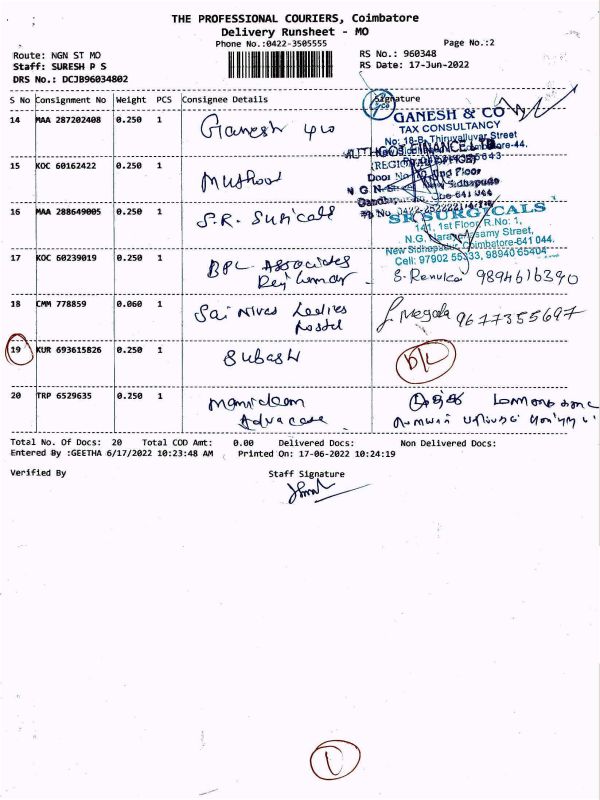 THE PROFESSIONAL COURIERS, Coimbatore
Delivery Runsheet - MO
Phone No.:0422-3505555
Page No.:2
Route: NGN ST MO
RS No.: 960348
Staff: SURESH P S
RS Date: 17-Jun-2022
DRS No.: DCJB96034802
S No Consignment No Weight PCS Consignee Details Signature
14 MAA 287202408 0.250 1 Ganesh
GANESH & CO
TAX CONSULTANCY
No: 16-B, Thiruvalluvar Street
15 KOC 60162422 0.250 1 Muthoot
MUTHOOT FINANCE LTD
(REGIONAL OFFICE)
16 MAA 288649005 0.250 1 S.R. Suricals
SR SURGYCALS
141, 1st Floor, R.No: 1,
N.G. Narayanasamy Street,
New Sidhapudur, Coimbatore-641 044.
Cell: 97902 55333, 98940 65404
17 KOC 60239019 0.250 1 BPL Associates
S. Renuka 9894616390
18 CMM 778859 0.060 1 Sai Nivas Ladies
Hostel
J. Megala 9677355697
19 KUR 693615826 0.250 1 Subash
D/L
20 TRP 6529635 0.250 1 Manickam
Advacate
Total No. Of Docs: 20 Total COD Amt: 0.00 Delivered Docs: Non Delivered Docs:
Entered By :GEETHA 6/17/2022 10:23:48 AM Printed On: 17-06-2022 10:24:19
Verified By
Staff Signature
1